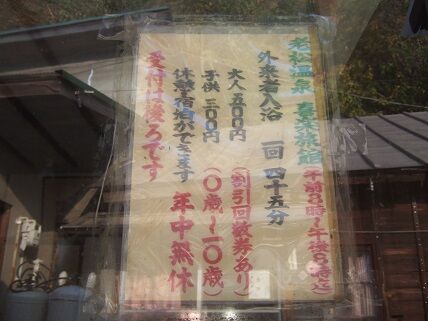 老松温泉 喜楽旅館
午前8時～午後8時迄
外来者入浴 一回 四十五分
大人 五00円 (割引回数券あり)
子供 三00円 (0歳～一0歳)
休憩宿泊ができます 年中無休
受付は後ろです